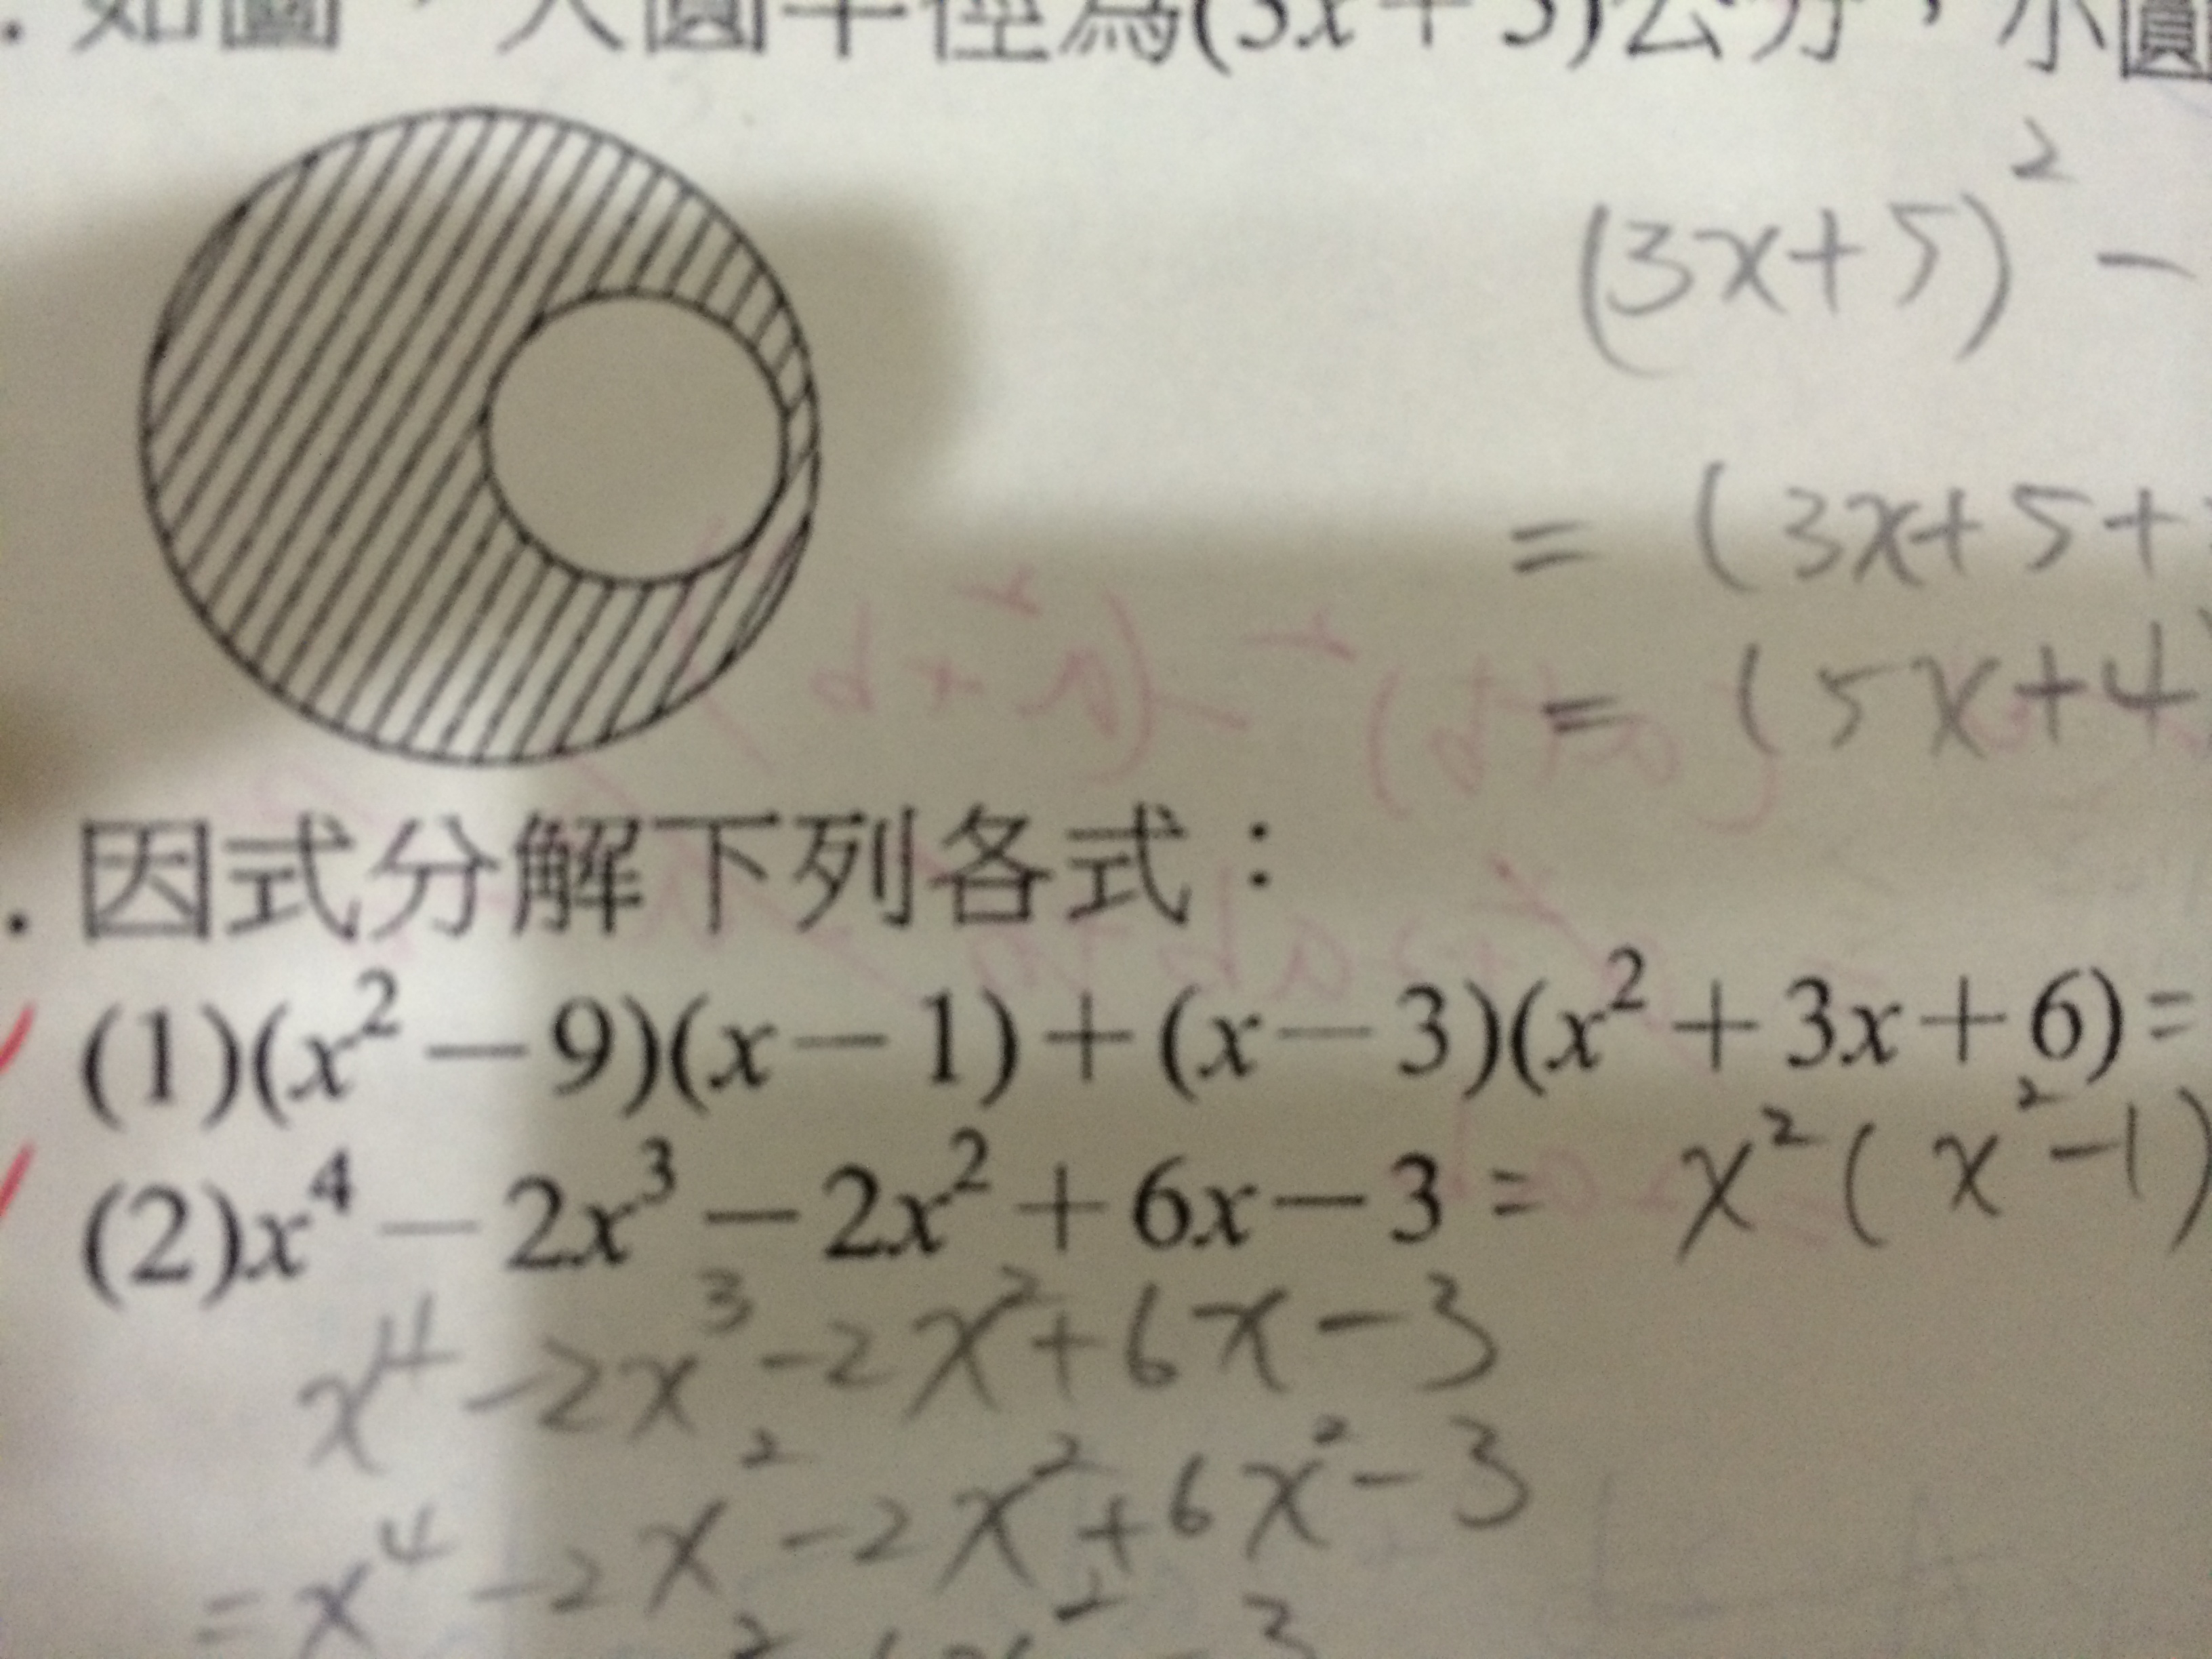 . 如圖，大圓半徑為(3x+5)公分，小圓
(3x+5)² −
= (3x+5+
= (5x+4)
. 因式分解下列各式：
(1)(x²−9)(x−1)+(x−3)(x²+3x+6)=
(2)x⁴−2x³−2x²+6x−3= x²(x²−1)
x⁴−2x³−2x²+6x−3
=x⁴−2x²−2x²+6x²−3